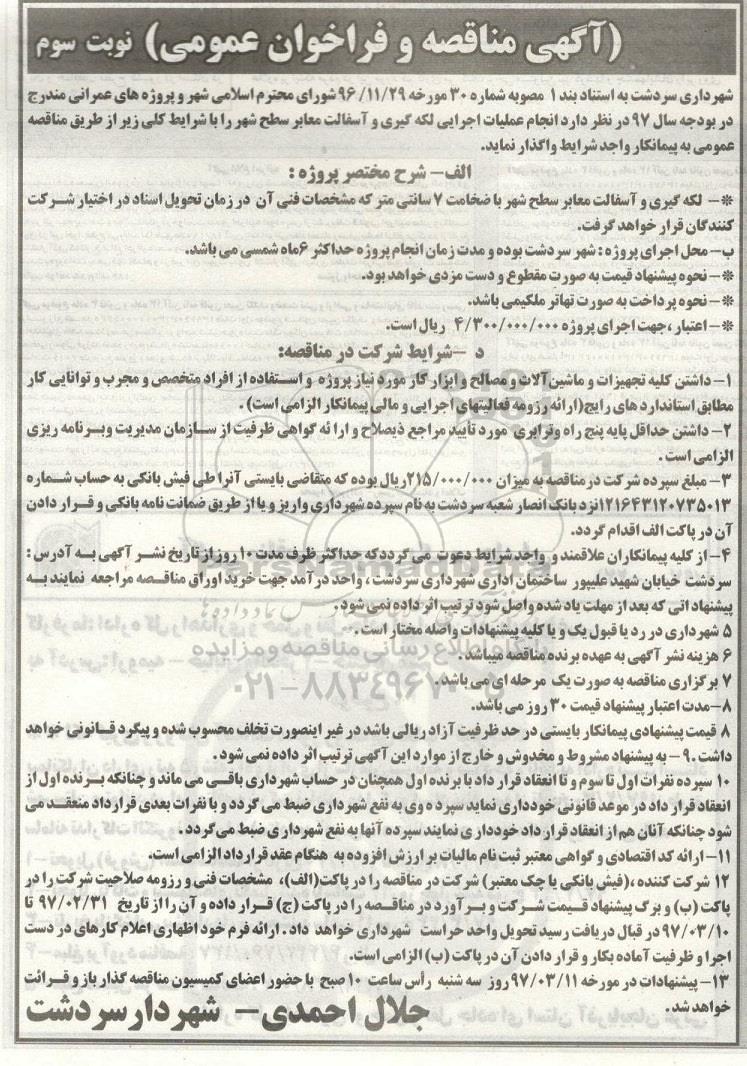 (آگهی مناقصه و فراخوان عمومی) نوبت سوم
شهرداری سردشت به استناد بند 1 مصوبه شماره 30 مورخه 96/11/29 شورای محترم اسلامی شهر و پروژه های عمرانی مندرج
در بودجه سال 97 در نظر دارد انجام عملیات اجرایی لکه گیری و آسفالت معابر سطح شهر را با شرایط کلی زیر از طریق مناقصه
عمومی به پیمانکار واجد شرایط واگذار نماید.
الف- شرح مختصر پروژه :
*- لکه گیری و آسفالت معابر سطح شهر با ضخامت 7 سانتی متر که مشخصات فنی آن در زمان تحویل اسناد در اختیار شرکت
کنندگان قرار خواهد گرفت.
ب- محل اجرای پروژه : شهر سردشت بوده و مدت زمان انجام پروژه حداکثر 6 ماه شمسی می باشد.
*- نحوه پیشنهاد قیمت به صورت مقطوع و دست مزدی خواهد بود.
*- نحوه پرداخت به صورت تهاتر ملکیمی باشد.
*- اعتبار ،جهت اجرای پروژه 4/300/000/000 ریال است.
د -شرایط شرکت در مناقصه:
1- داشتن کلیه تجهیزات و ماشین آلات و مصالح و ابزار کار مورد نیاز پروژه و استفاده از افراد متخصص و مجرب و توانایی کار
مطابق استاندارد های رایج(ارائه رزومه فعالیتهای اجرایی و مالی پیمانکار الزامی است) .
2- داشتن حداقل پایه پنج راه وترابری مورد تأیید مراجع ذیصلاح و ارا ئه گواهی ظرفیت از سازمان مدیریت وبرنامه ریزی
الزامی است .
3- مبلغ سپرده شرکت در مناقصه به میزان 215/000/000ریال بوده که متقاضی بایستی آنرا طی فیش بانکی به حساب شماره
121643120735013نزد بانک انصار شعبه سردشت به نام سپرده شهرداری واریز و یا از طریق ضمانت نامه بانکی و قرار دادن
آن در پاکت الف اقدام گردد.
4- از کلیه پیمانکاران علاقمند و واجد شرایط دعوت می گرددکه حداکثر ظرف مدت 10 روز از تاریخ نشر آگهی به آدرس :
سردشت خیابان شهید علیپور ساختمان اداری شهرداری سردشت ، واحد درآمد جهت خرید اوراق مناقصه مراجعه نمایند به
پیشنهاد اتی که بعد از مهلت یاد شده واصل شود ترتیب اثر داده نمی شود .
5 شهرداری در رد یا قبول یک و یا کلیه پیشنهادات واصله مختار است .
6 هزینه نشر آگهی به عهده برنده مناقصه میباشد .
7 برگزاری مناقصه به صورت یک مرحله ای می باشد .
8-مدت اعتبار پیشنهاد قیمت 30 روز می باشد.
8 قیمت پیشنهادی پیمانکار بایستی در حد ظرفیت آزاد ریالی باشد در غیر اینصورت تخلف محسوب شده و پیگرد قانونی خواهد
داشت .9- به پیشنهاد مشروط و مخدوش و خارج از موارد این آگهی ترتیب اثر داده نمی شود.
10 سپرده نفرات اول تا سوم و تا انعقاد قرار داد با برنده اول همچنان در حساب شهرداری باقی می ماند و چنانکه برنده اول از
انعقاد قرار داد در موعد قانونی خودداری نماید سپرد ه وی به نفع شهرداری ضبط می گردد و با نفرات بعدی قرارداد منعقد می
شود چنانکه آنان هم از انعقاد قرار داد خودداری نمایند سپرده آنها به نفع شهرداری ضبط می‌گردد .
11- ارائه کد اقتصادی و گواهی معتبر ثبت نام مالیات بر ارزش افزوده به هنگام عقد قرار داد الزامی است.
12 شرکت کننده ،(فیش بانکی یا چک معتبر) شرکت در مناقصه را در پاکت(الف)، مشخصات فنی و رزومه صلاحیت شرکت را در
پاکت (ب) و برگ پیشنهاد قیمت شرکت و برآورد در مناقصه را در پاکت (ج) قرار داده و آن را از تاریخ 97/02/31 تا
97/03/10 در قبال دریافت رسید تحویل واحد حراست شهرداری خواهد داد . ارائه فرم خود اظهاری اعلام کارهای در دست
اجرا و ظرفیت آماده بکار و قرار دادن آن در پاکت (ب) الزامی است.
13- پیشنهادات در مورخه 97/03/11 روز سه شنبه رأس ساعت 10 صبح با حضور اعضای کمیسیون مناقصه گذار باز و قرائت
خواهد شد .
جلال احمدی- شهردار سردشت
ParsNamadData
پارس نماد داده ها
اطلاع رسانی مناقصه و مزایده
021-88349670